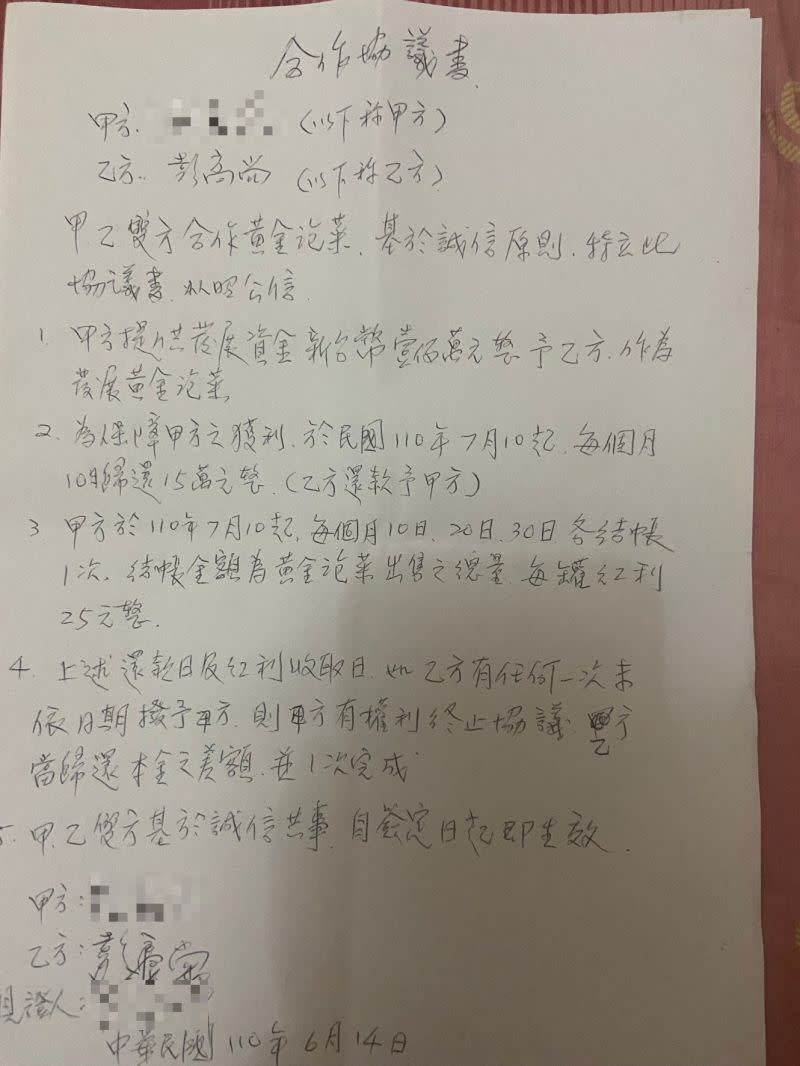 合作協議書
甲方. (以下称甲方)
乙方. 彭高尚 (以下称乙方)
甲.乙雙方合作黃金泡菜. 基於誠信原則. 特立此
協議書. 以昭公信.
1. 甲方提供發展資金新台幣壹佰萬元整予乙方. 作為
發展黃金泡菜
2. 為保障甲方之獲利. 於民國110年7月10起. 每個月
10日歸還15萬元整. (乙方還款予甲方)
3 甲方於110年7月10起. 每個月10日. 20日. 30日各結帳
1次. 結帳金額為黃金泡菜出售之總量. 每罐紅利
25元整.
4. 上述還款日及紅利收取日. 如乙方有任何一次未
依日期撥予甲方. 則甲方有權利終止協議. 乙方
當歸還本金之差額. 並1次完成
5. 甲.乙雙方基於誠信共事. 自簽定日起即生效.
甲方:
乙方: 彭高尚
見證人:
中華民國 110年 6月 14日